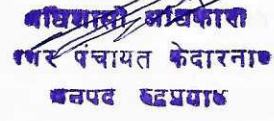 अधिशासी अधिकारी
नगर पंचायत केदारनाथ
जनपद रुद्रप्रयाग